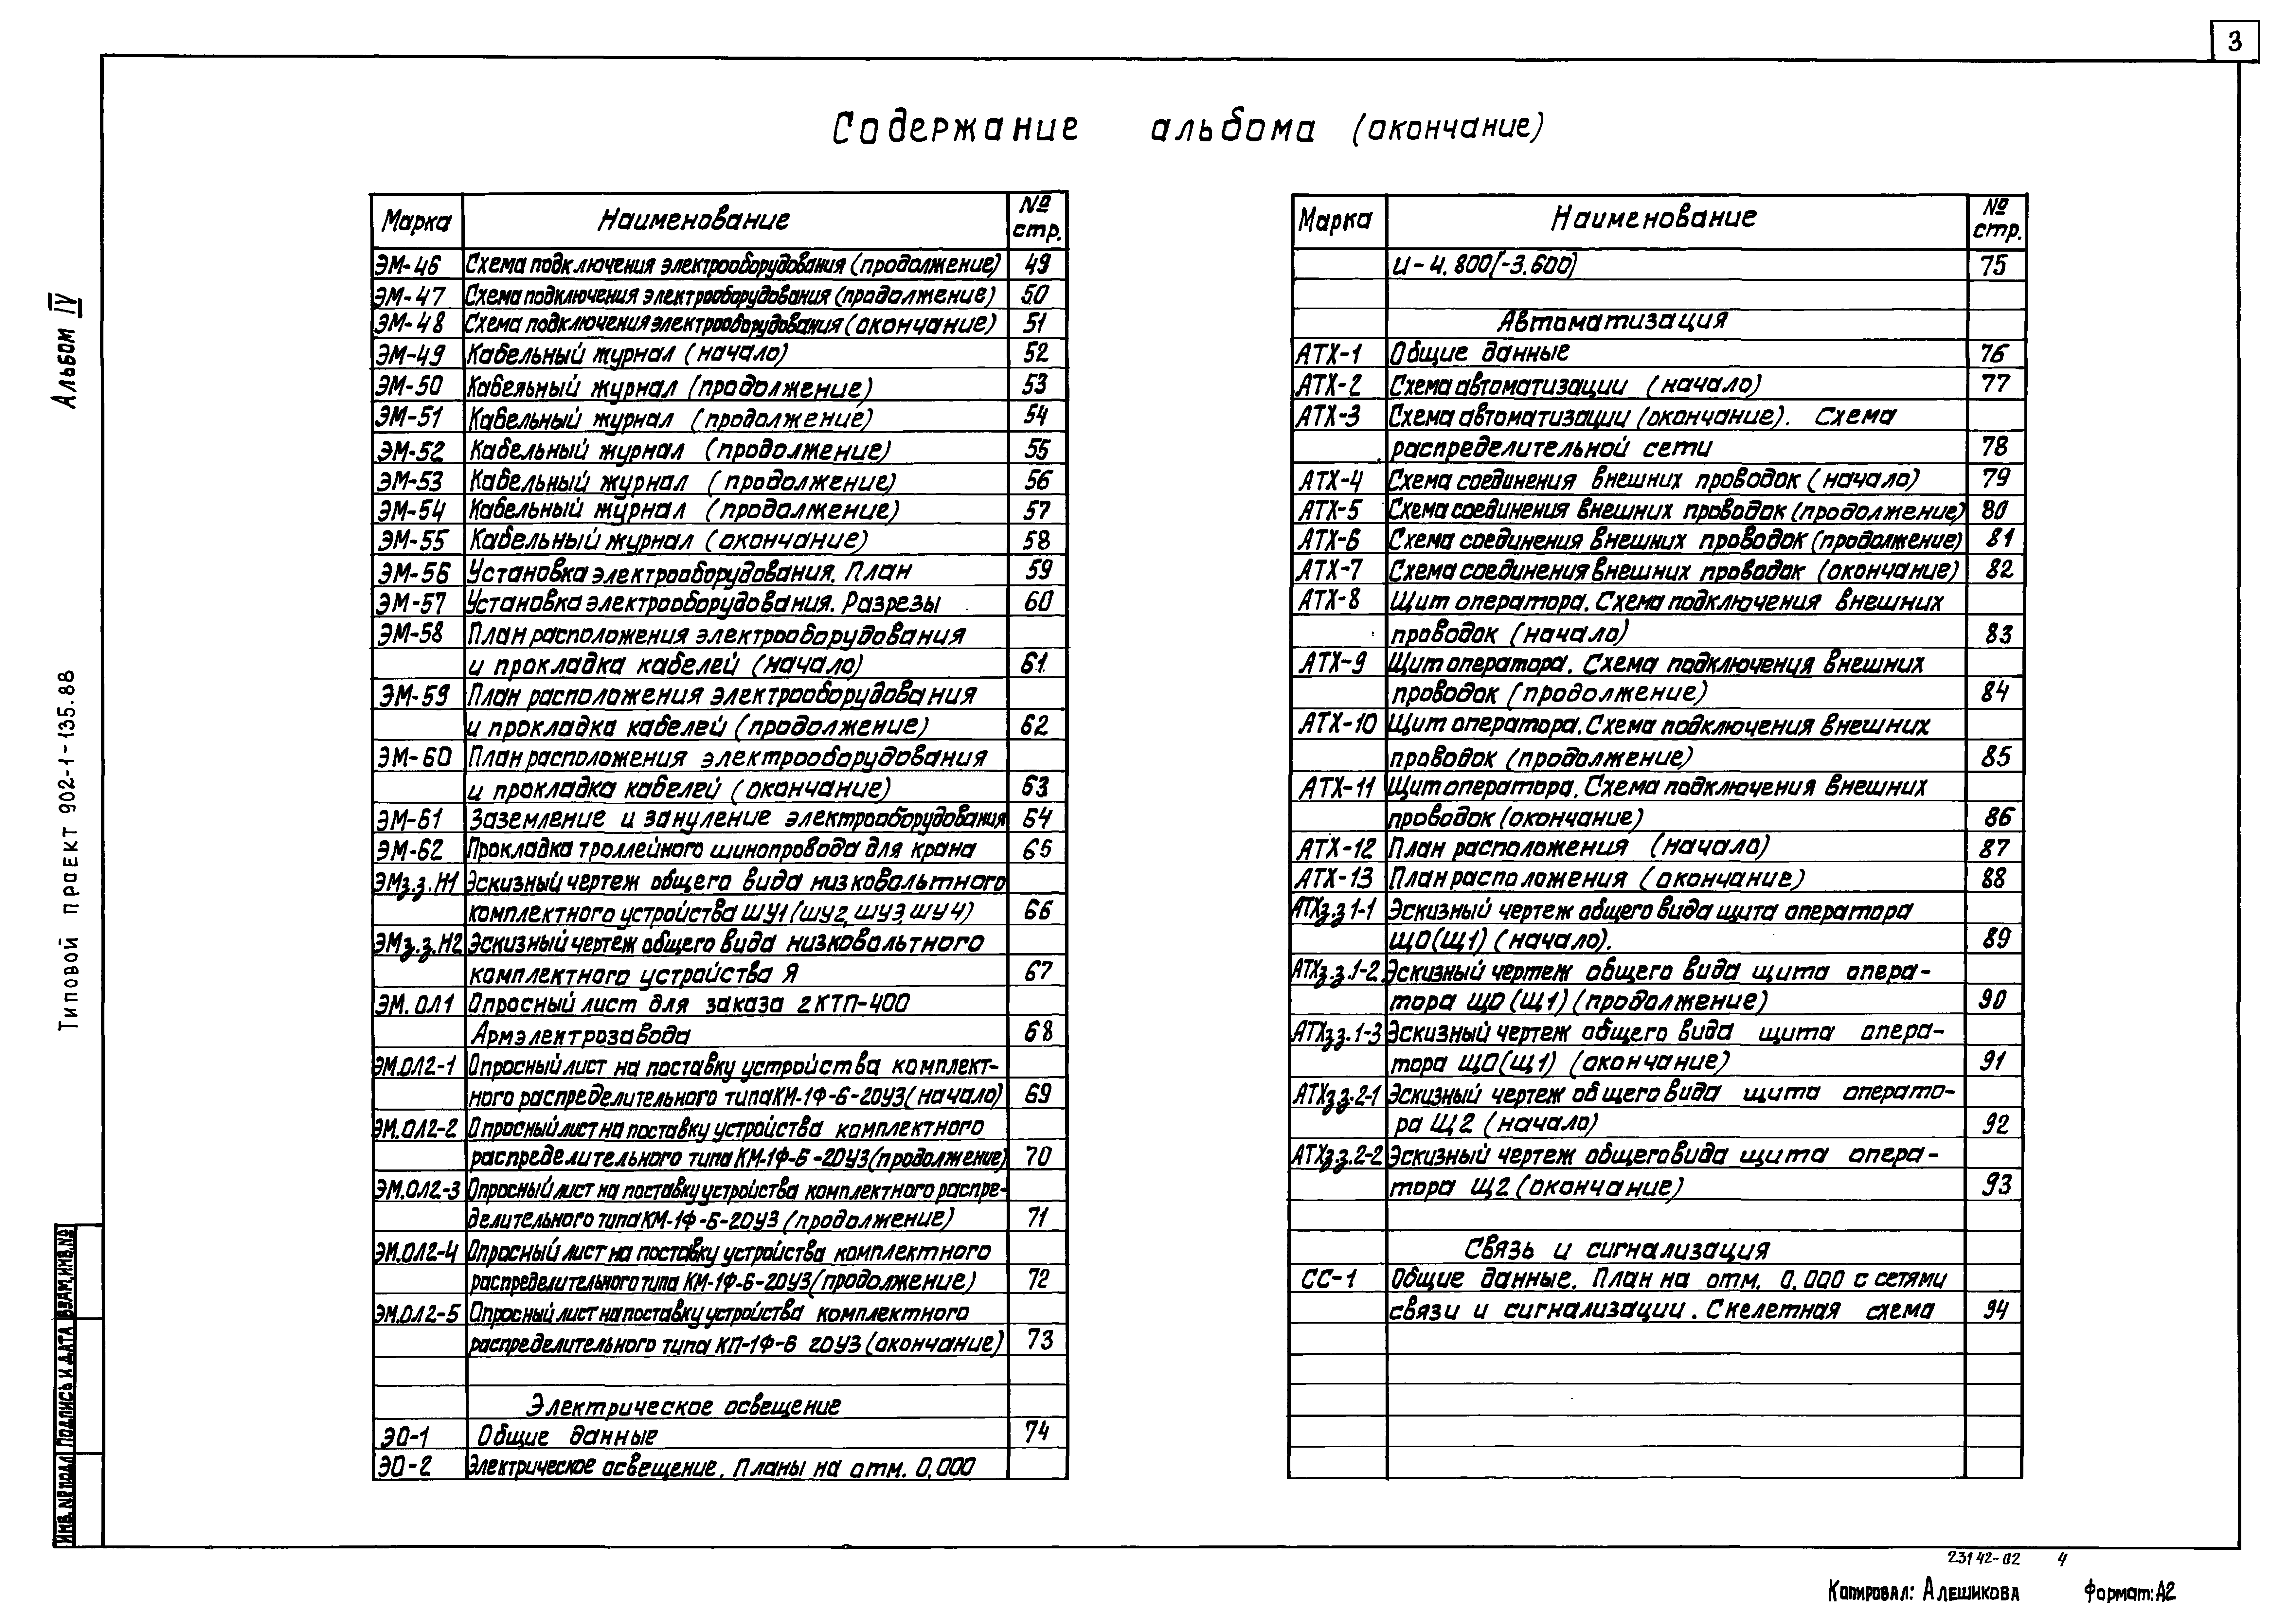 3
Содержание альбома (окончание)
Альбом IV
Типовой проект 902-1-135.88
Марка Наименование № стр.
ЭМ-46 Схема подключения электрооборудования (продолжение) 49
ЭМ-47 Схема подключения электрооборудования (продолжение) 50
ЭМ-48 Схема подключения электрооборудования (окончание) 51
ЭМ-49 Кабельный журнал (начало) 52
ЭМ-50 Кабельный журнал (продолжение) 53
ЭМ-51 Кабельный журнал (продолжение) 54
ЭМ-52 Кабельный журнал (продолжение) 55
ЭМ-53 Кабельный журнал (продолжение) 56
ЭМ-54 Кабельный журнал (продолжение) 57
ЭМ-55 Кабельный журнал (окончание) 58
ЭМ-56 Установка электрооборудования. План 59
ЭМ-57 Установка электрооборудования. Разрезы 60
ЭМ-58 План расположения электрооборудования
и прокладка кабелей (начало) 61
ЭМ-59 План расположения электрооборудования
и прокладка кабелей (продолжение) 62
ЭМ-60 План расположения электрооборудования
и прокладка кабелей (окончание) 63
ЭМ-61 Заземление и зануление электрооборудования 64
ЭМ-62 Прокладка троллейного шинопровода для крана 65
ЭМз.з.Н1 Эскизный чертеж общего вида низковольтного
комплектного устройства ШУ1 (ШУ2, ШУ3, ШУ4) 66
ЭМз.з.Н2 Эскизный чертеж общего вида низковольтного
комплектного устройства Я 67
ЭМ.ОЛ1 Опросный лист для заказа 2КТП-400
Армэлектрозавода 68
ЭМ.ОЛ2-1 Опросный лист на поставку устройства комплект-
ного распределительного типа КМ-1Ф-6-20У3 (начало) 69
ЭМ.ОЛ2-2 Опросный лист на поставку устройства комплектного
распределительного типа КМ-1Ф-6-20У3 (продолжение) 70
ЭМ.ОЛ2-3 Опросный лист на поставку устройства комплектного распре-
делительного типа КМ-1Ф-6-20У3 (продолжение) 71
ЭМ.ОЛ2-4 Опросный лист на поставку устройства комплектного
распределительного типа КМ-1Ф-6-20У3 (продолжение) 72
ЭМ.ОЛ2-5 Опросный лист на поставку устройства комплектного
распределительного типа КП-1Ф-6 20У3 (окончание) 73
Электрическое освещение
ЭО-1 Общие данные 74
ЭО-2 Электрическое освещение. Планы на отм. 0.000
Марка Наименование № стр.
и -4.800 (-3.600) 75
Автоматизация
АТХ-1 Общие данные 76
АТХ-2 Схема автоматизации (начало) 77
АТХ-3 Схема автоматизации (окончание). Схема
распределительной сети 78
АТХ-4 Схема соединения внешних проводок (начало) 79
АТХ-5 Схема соединения внешних проводок (продолжение) 80
АТХ-6 Схема соединения внешних проводок (продолжение) 81
АТХ-7 Схема соединения внешних проводок (окончание) 82
АТХ-8 Щит оператора. Схема подключения внешних
проводок (начало) 83
АТХ-9 Щит оператора. Схема подключения внешних
проводок (продолжение) 84
АТХ-10 Щит оператора. Схема подключения внешних
проводок (продолжение) 85
АТХ-11 Щит оператора. Схема подключения внешних
проводок (окончание) 86
АТХ-12 План расположения (начало) 87
АТХ-13 План расположения (окончание) 88
АТХз.з 1-1 Эскизный чертеж общего вида щита оператора
ЩО (Щ1) (начало). 89
АТХз.з.1-2 Эскизный чертеж общего вида щита опера-
тора ЩО (Щ1) (продолжение) 90
АТХз.з.1-3 Эскизный чертеж общего вида щита опера-
тора ЩО (Щ1) (окончание) 91
АТХз.з.2-1 Эскизный чертеж общего вида щита операто-
ра Щ2 (начало) 92
АТХз.з.2-2 Эскизный чертеж общего вида щита опера-
тора Щ2 (окончание) 93
Связь и сигнализация
СС-1 Общие данные. План на отм. 0.000 с сетями
связи и сигнализации. Скелетная схема 94
Инв. № подл Подпись и дата Взам. инв. №
23142-02 4
Копировал: Алешикова Формат: А2